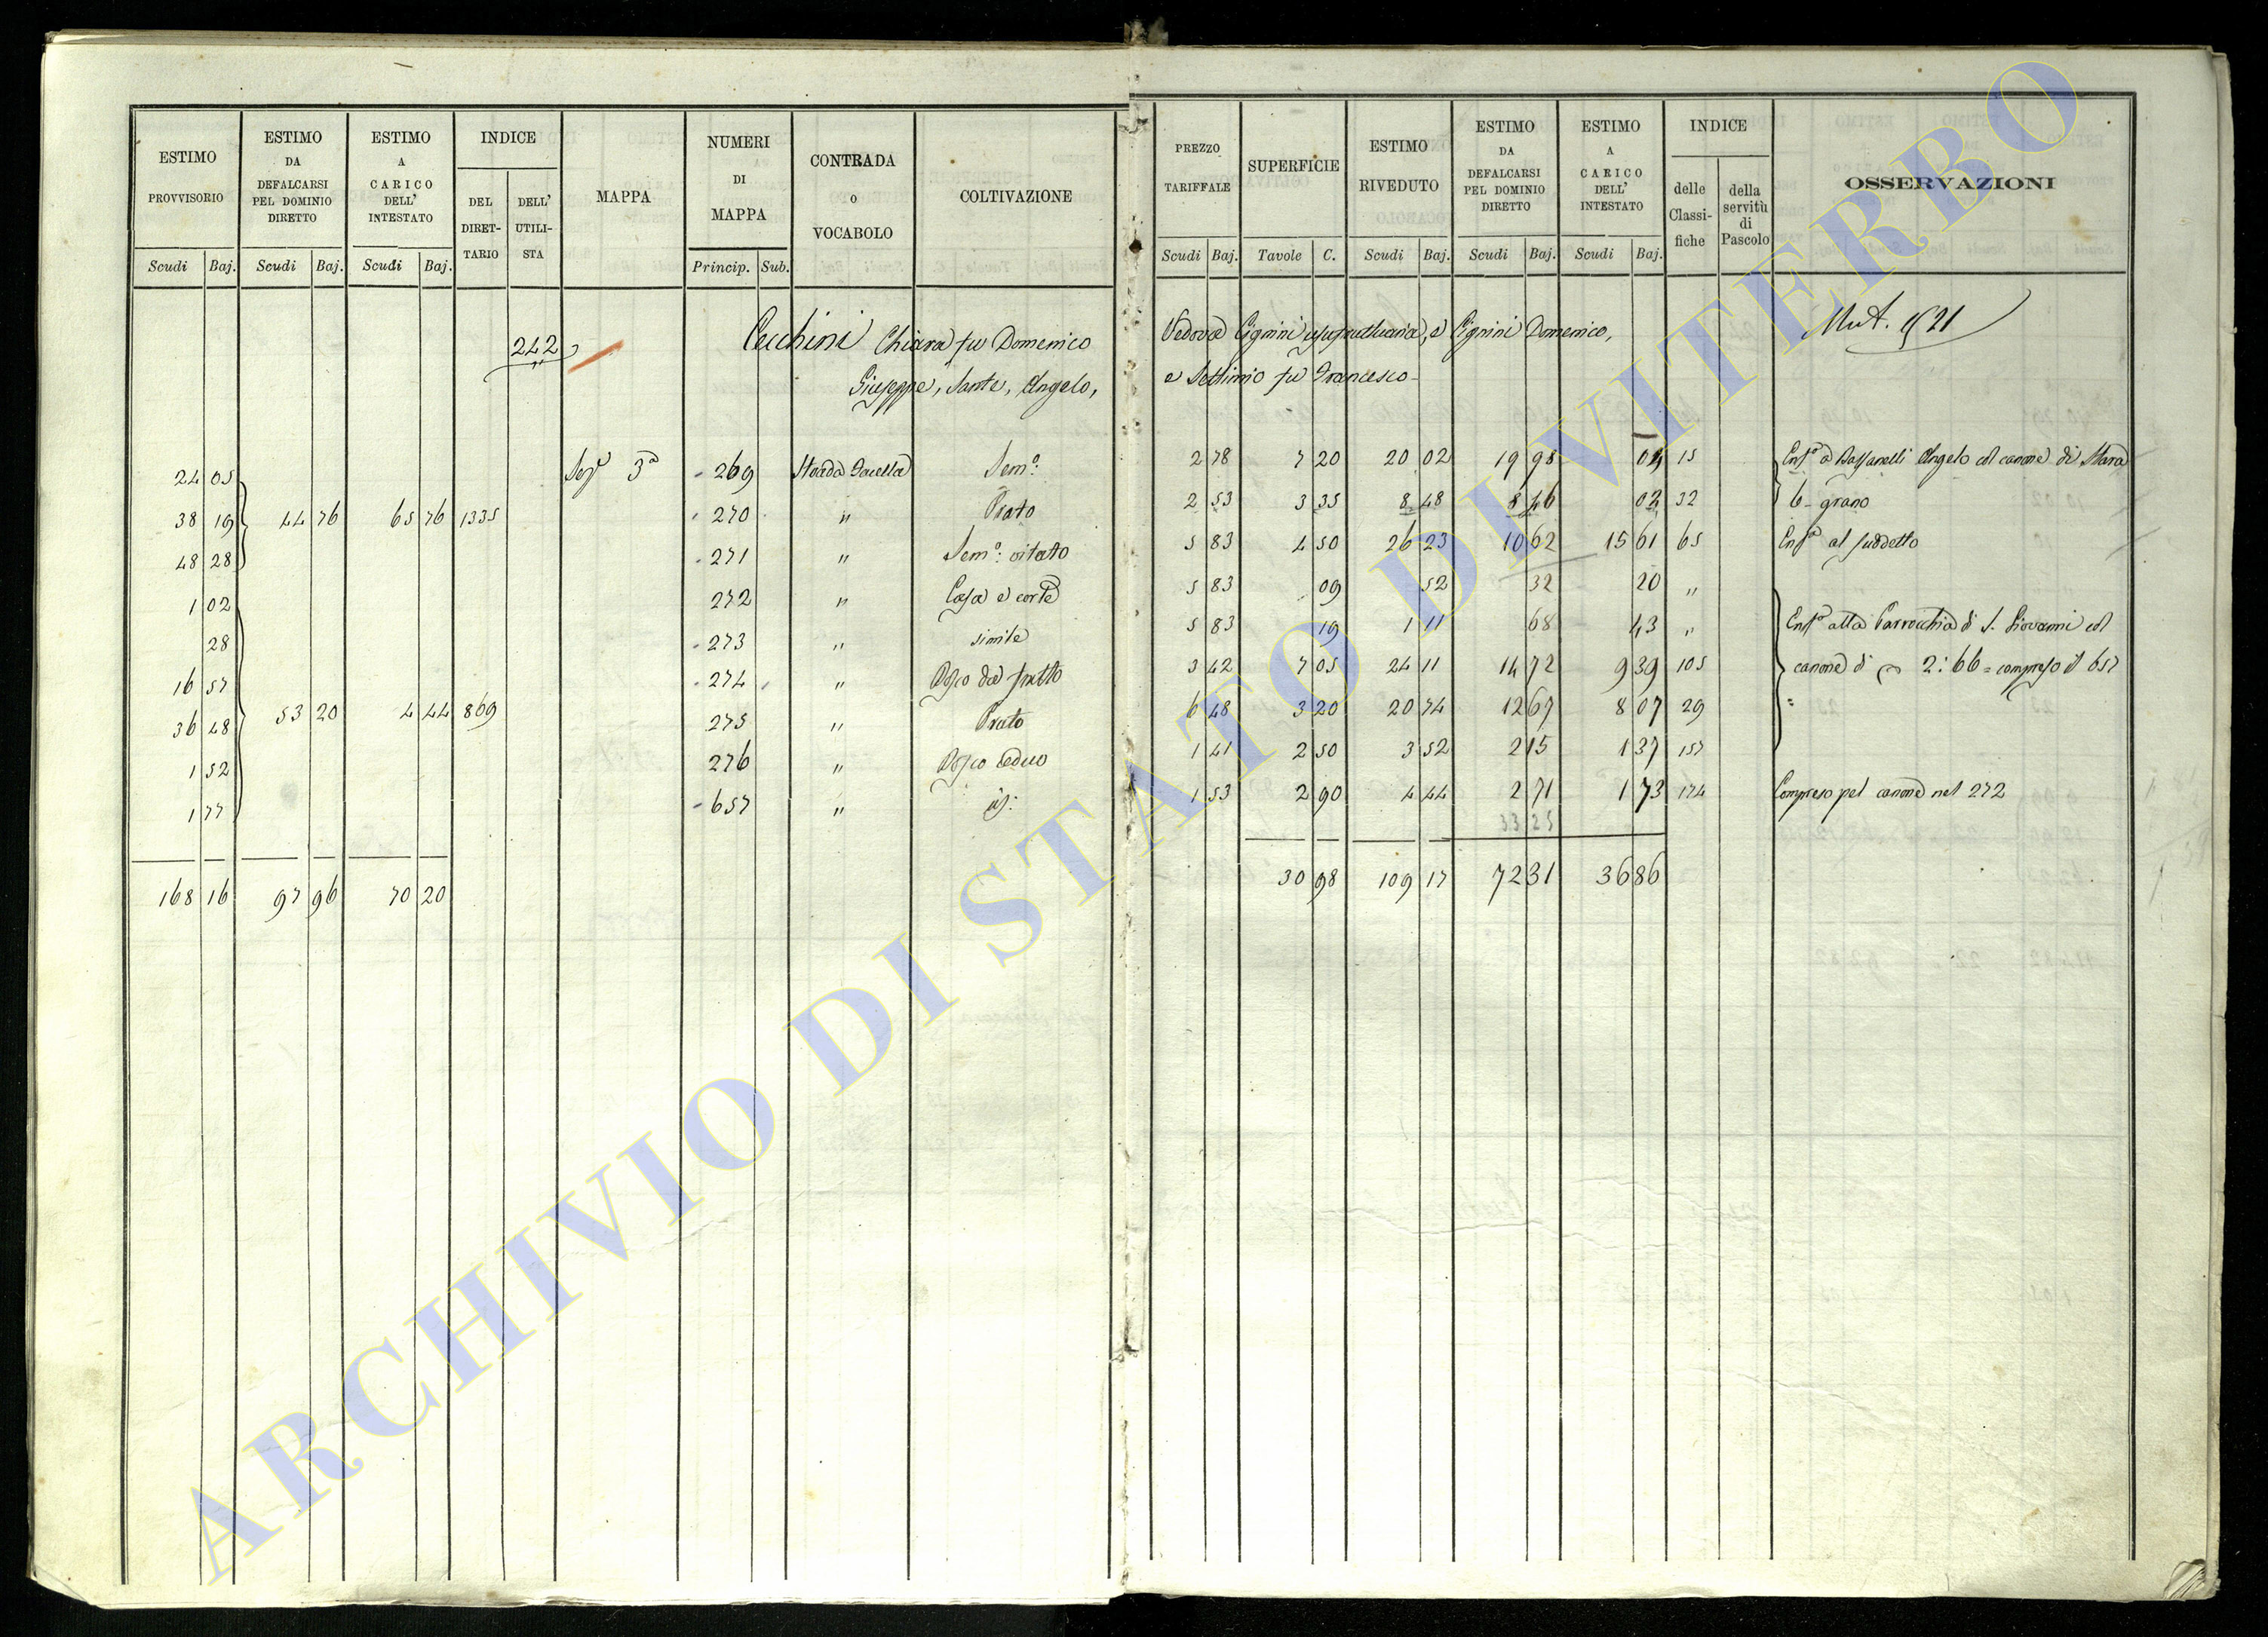 ESTIMO PROVVISORIO | ESTIMO DA DEFALCARSI PEL DOMINIO DIRETTO | ESTIMO A CARICO DELL' INTESTATO | INDICE | MAPPA | NUMERI DI MAPPA | CONTRADA O VOCABOLO | COLTIVAZIONE | PREZZO TARIFFALE | SUPERFICIE | ESTIMO RIVEDUTO | ESTIMO DA DEFALCARSI PEL DOMINIO DIRETTO | ESTIMO A CARICO DELL' INTESTATO | INDICE | OSSERVAZIONI
DEL DIRETTARIO | DELL' UTILISTA | delle Classifiche | della servitù di Pascolo
Scudi | Baj. | Scudi | Baj. | Scudi | Baj. | Princip. | Sub. | Scudi | Baj. | Tavole | C. | Scudi | Baj. | Scudi | Baj. | Scudi | Baj.
242 Cecchini Chiara fu Domenico Vedova Cignini usufruttuaria, e Cignini Domenico, Mut.
Giuseppe, Sante, Angelo, e Settimio fu Francesco
24 05 | 3a | 269 | Strada | Sem.o: | 2 78 | 7 20 | 20 02 | 19 98 | 04 | 15 | Enf.o a Bassanelli Angelo col canone di
38 19 | 44 76 | 65 76 | 1335 | 270 | " | Prato | 2 53 | 3 35 | 8 48 | 8 46 | 02 | 32 | 6 grano
48 28 | 271 | " | Sem.o: vitato | 5 83 | 4 50 | 26 23 | 10 62 | 15 61 | 65 | Enf.o al suddetto
1 02 | 272 | " | Casa e corte | 5 83 | 09 | 52 | 32 | 20 | "
28 | 273 | " | simile | 5 83 | 19 | 1 11 | 68 | 43 | " | Enf.o alla Parrocchia di S. Giovanni col
16 57 | 274 | " | Bosco da frutto | 3 42 | 7 05 | 24 11 | 14 72 | 9 39 | 105 | canone di 2:66 = compreso il 657
36 48 | 53 20 | 4 44 | 869 | 275 | " | Prato | 6 48 | 3 20 | 20 74 | 12 67 | 8 07 | 29 | =
1 52 | 276 | " | Bosco ceduo | 1 41 | 2 50 | 3 52 | 2 15 | 1 37 | 157
1 77 | 657 | " | id: | 1 53 | 2 90 | 4 44 | 2 71 | 1 73 | 174 | Compreso pel canone nel 272
33 25
168 16 | 97 96 | 70 20 | 30 98 | 109 17 | 72 31 | 36 86
ARCHIVIO DI STATO DI VITERBO